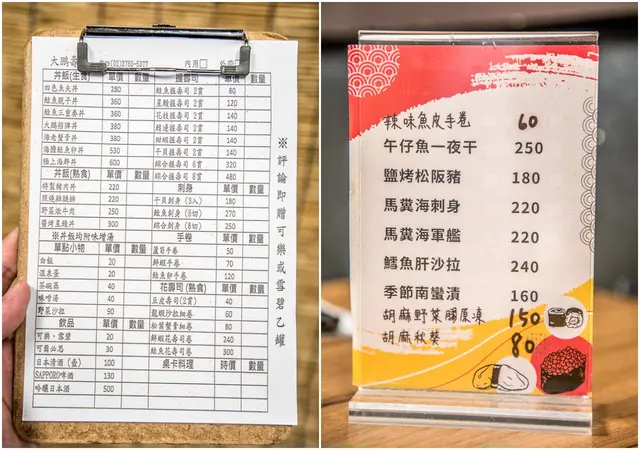 大鵬壽 (02)2760-5377 內用□
丼飯(生食) 單價 數量 握壽司 單價 數量
四色魚丼 280 鮭魚握壽司 2貫 80
鮭魚親子丼 360 星鰻握壽司 2貫 140
鮭魚三重奏丼 360 花枝握壽司 2貫 120
大鵬招牌丼 360 鰭邊握壽司 2貫 140
海老蟹膏丼 340 甜蝦握壽司 2貫 140
海膽鮭魚卵丼 530 綜合握壽司 6貫 320
極上海鮮丼 600 綜合握壽司 8貫 480
丼飯(熟食) 單價 數量 刺身 單價 數量
特製豬肉丼 220 干貝刺身 (3入) 180
照燒雞腿排 220 鮭魚刺身 (6切) 270
野菜燉牛肉 250 綜合刺身 (8切) 250
醬烤星鰻丼 300
※丼飯均附味增湯 手卷 單價 數量
單點小物 單價 數量 蘆筍手卷 50
白飯 20 鮮蝦手卷 70
溫泉蛋 20 鮭魚卵手卷 120
茶碗蒸 40 花壽司(熟食) 單價 數量
味增湯 40 豆皮壽司(2貫) 40
野菜沙拉 90 龍蝦沙拉細卷 60
飲品 單價 數量 松葉蟹膏細卷 80
可樂、雪碧 20 鮮蝦花壽司卷 240
可爾必思 30 鮭魚花壽司卷 300
日本清酒 (壺) 100 桌卡料理 時價 數量
SAPPORO啤酒 130
吟釀日本酒 500
※評論即贈可樂或雪碧乙罐
辣味魚皮手卷 60
午仔魚一夜干 250
鹽烤松阪豬 180
馬糞海刺身 220
馬糞海軍艦 220
鱈魚肝沙拉 240
季節南蠻漬 160
胡麻野菜胡厚凍 150
胡麻秋葵 80